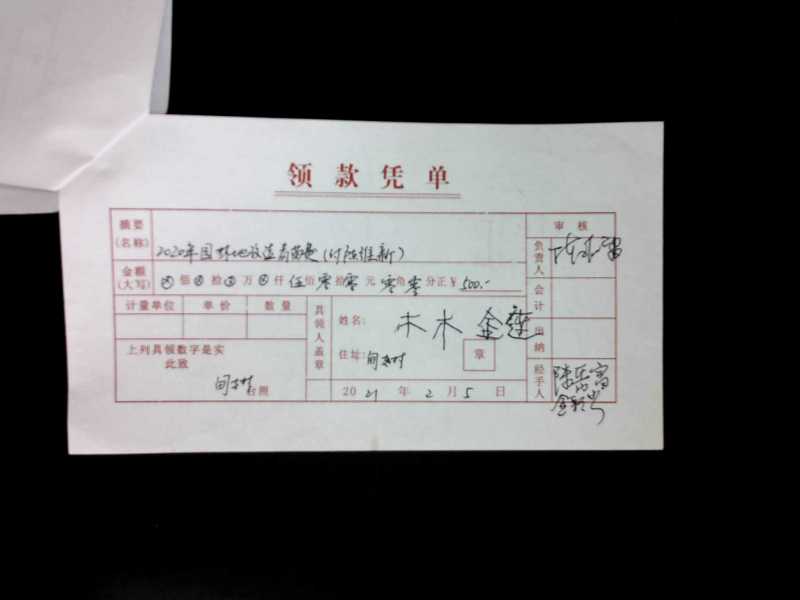 领款凭单
摘要(名称) 2020年园林地改造
审核
负责人
金额(大写) ⊗佰⊗拾⊗万⊗仟伍佰零拾零元零角零分正¥500.-
会计
计量单位 单价 数量
具领人盖章
姓名: 林金莲
出纳
上列具领数字是实
此致
台照
住址: 章
经手人
2021年2月5日